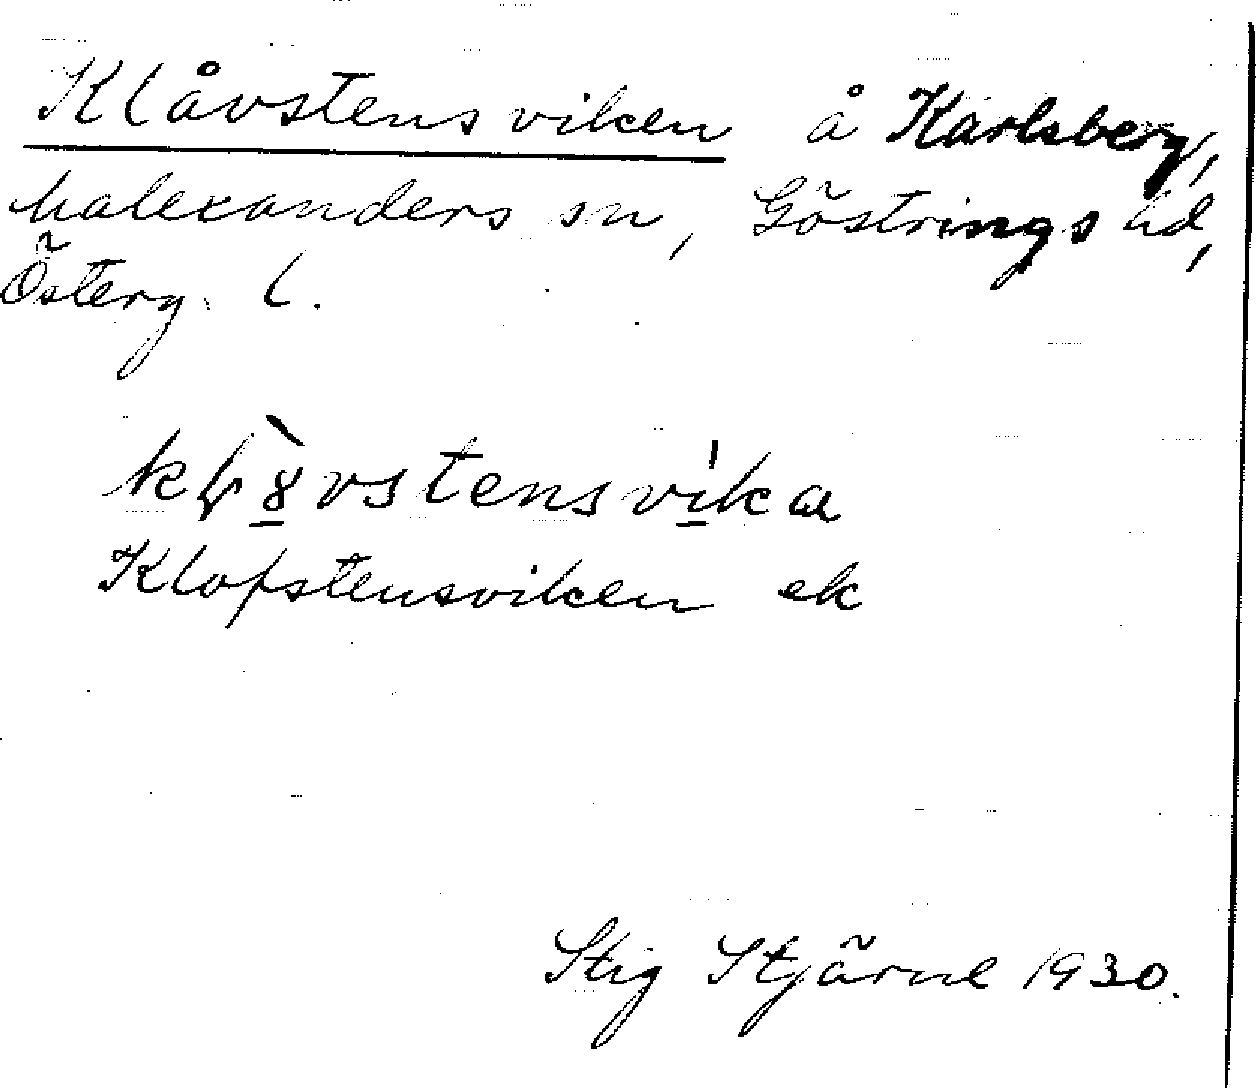 Klåvstensviken å Karlsberg,
Malexanders sn, Göstrings hd,
Österg. l.
Klopstensviken ek
Stig Stjärne 1930.